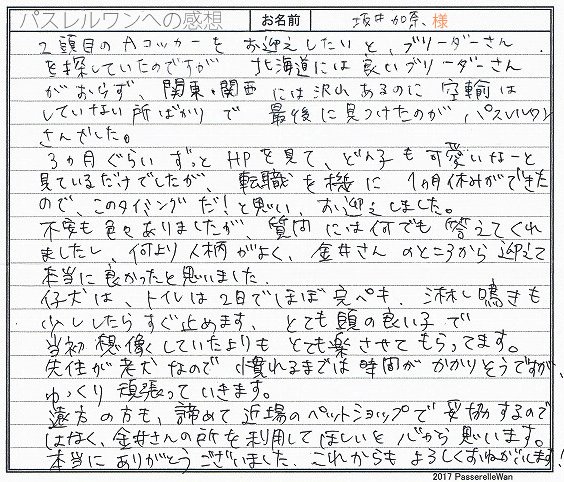 パスレルワンへの感想 お名前 坂井 加奈 様
2頭目のAコッカーをお迎えしたいと、ブリーダーさん
を探していたのですが 北海道には良いブリーダーさん
がおらず、関東・関西には沢山あるのに空輸は
していない所ばかりで 最後に見つけたのが、パスレルワン
さんでした。
3ヵ月ぐらいずっとHPを見て、どの子も可愛いなーと
見ているだけでしたが、転職を機に1ヵ月休みができた
ので、このタイミングだ!と思い、お迎えしました。
不安も色々ありましたが 質問には何でも答えてくれ
ましたし、何より人柄がよく、金井さんのところから迎えて
本当に良かったと思いました。
仔犬は、トイレは2日でほぼ完ペキ、淋し鳴きも
少ししたらすぐ止めます、とても頭の良い子で
当初想像していたよりもとても楽させてもらってます。
先住が老犬なので慣れるまでは時間がかかりそうですが、
ゆっくり頑張っていきます。
遠方の方も、諦めて近場のペットショップで妥協するので
はなく、金井さんの所を利用してほしいと心から思います。
本当にありがとうございました。これからもよろしくおねがいします!
2017 PasserelleWan